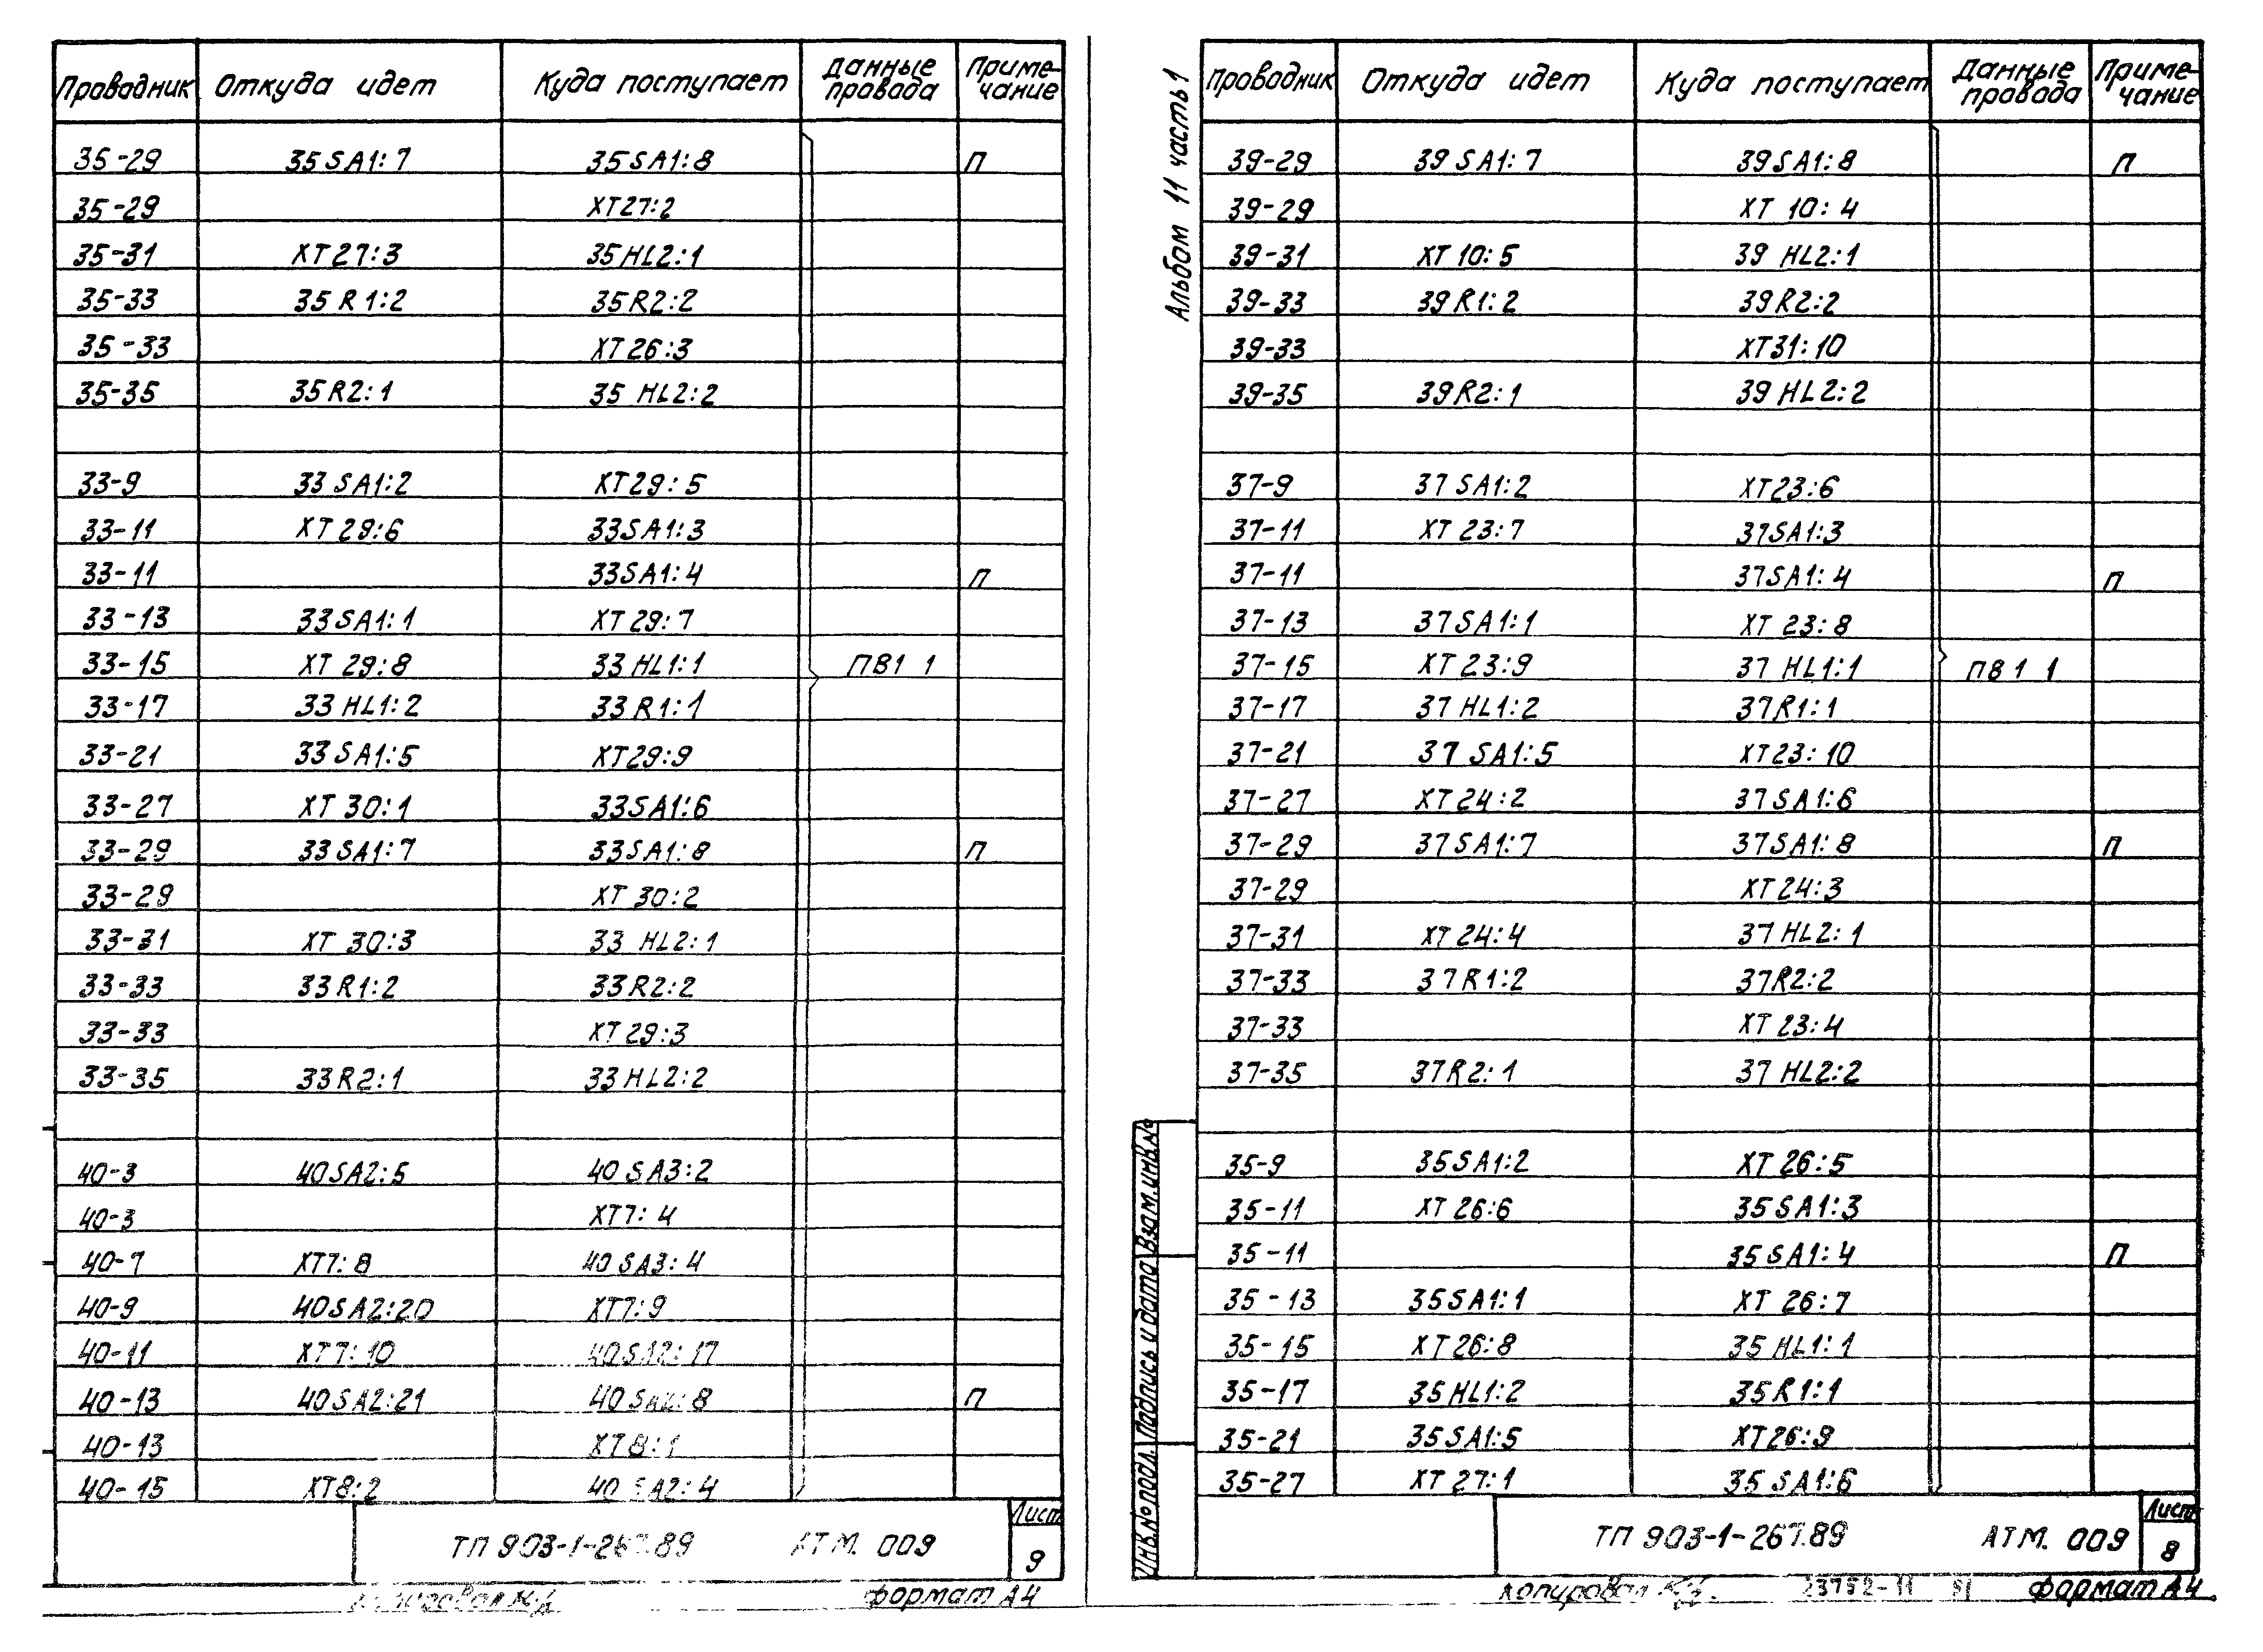 Проводник Откуда идет Куда поступает Данные провода Приме-чание
35-29 35SA1:7 35SA1:8 П
35-29 XT27:2
35-31 XT27:3 35HL2:1
35-33 35R1:2 35R2:2
35-33 XT26:3
35-35 35R2:1 35HL2:2
33-9 33SA1:2 XT29:5
33-11 XT29:6 33SA1:3
33-11 33SA1:4 П
33-13 33SA1:1 XT29:7
33-15 XT29:8 33HL1:1 ПВ1 1
33-17 33HL1:2 33R1:1
33-21 33SA1:5 XT29:9
33-27 XT30:1 33SA1:6
33-29 33SA1:7 33SA1:8 П
33-29 XT30:2
33-31 XT30:3 33HL2:1
33-33 33R1:2 33R2:2
33-33 XT29:3
33-35 33R2:1 33HL2:2
40-3 40SA2:5 40SA3:2
40-3 XT7:4
40-7 XT7:8 40SA3:4
40-9 40SA2:20 XT7:9
40-11 XT7:10 40SA2:17
40-13 40SA2:21 40SA2:8 П
40-13 XT8:1
40-15 XT8:2 40SA2:4
ТП 903-1-267.89 АТМ. 009 Лист 9
Формат А4
Альбом 11 часть 1
Проводник Откуда идет Куда поступает Данные провода Приме-чание
39-29 39SA1:7 39SA1:8 П
39-29 XT10:4
39-31 XT10:5 39HL2:1
39-33 39R1:2 39R2:2
39-33 XT31:10
39-35 39R2:1 39HL2:2
37-9 37SA1:2 XT23:6
37-11 XT23:7 37SA1:3
37-11 37SA1:4 П
37-13 37SA1:1 XT23:8
37-15 XT23:9 37HL1:1 ПВ1 1
37-17 37HL1:2 37R1:1
37-21 37SA1:5 XT23:10
37-27 XT24:2 37SA1:6
37-29 37SA1:7 37SA1:8 П
37-29 XT24:3
37-31 XT24:4 37HL2:1
37-33 37R1:2 37R2:2
37-33 XT23:4
37-35 37R2:1 37HL2:2
35-9 35SA1:2 XT26:5
35-11 XT26:6 35SA1:3
35-11 35SA1:4 П
35-13 35SA1:1 XT26:7
35-15 XT26:8 35HL1:1
35-17 35HL1:2 35R1:1
35-21 35SA1:5 XT26:9
35-27 XT27:1 35SA1:6
Инв.№подл. Подпись и дата Взам.инв.№
ТП 903-1-267.89 АТМ. 009 Лист 8
Копировал 23752-11 Формат А4